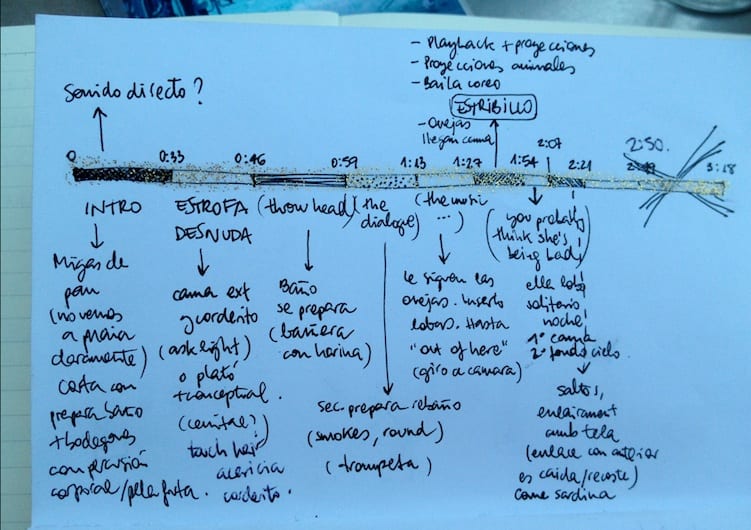 - Playback + proyecciones
- Proyecciones animales
- Baila coreo
ESTRIBILLO
- Ovejas
llegan cama
Sonido directo?
0
0:33
0:46
0:59
1:13
1:27
1:54
2:07
2:21
2:50.
3:18
INTRO
Migas de
pan
(no vemos
a
claramente)
Corta con
prepara baño
+ bodegones
con precisión
corporal/pela fruta.
ESTROFA
DESNUDA
cama ext
y corderito
(ask light)
o plató
+ conceptual.
(cenital?)
touch hair
acaricia
corderito.
(throw head)
Baño
se prepara
(bañera
con harina)
(the
dialogue)
sec. prepara rebaño
(smokes, round)
(trompeta)
(the music
...)
le siguen las
ovejas. Inserto
lobos. Hasta
"out of here"
(giro a cámara)
(you probably
think she's
being bad)
ella lobo
solitario
noche
1º cama
2º fondo cielo.
saltos,
enlairament
amb tela
(enlace con anterior
es caída/recoste)
come sardina